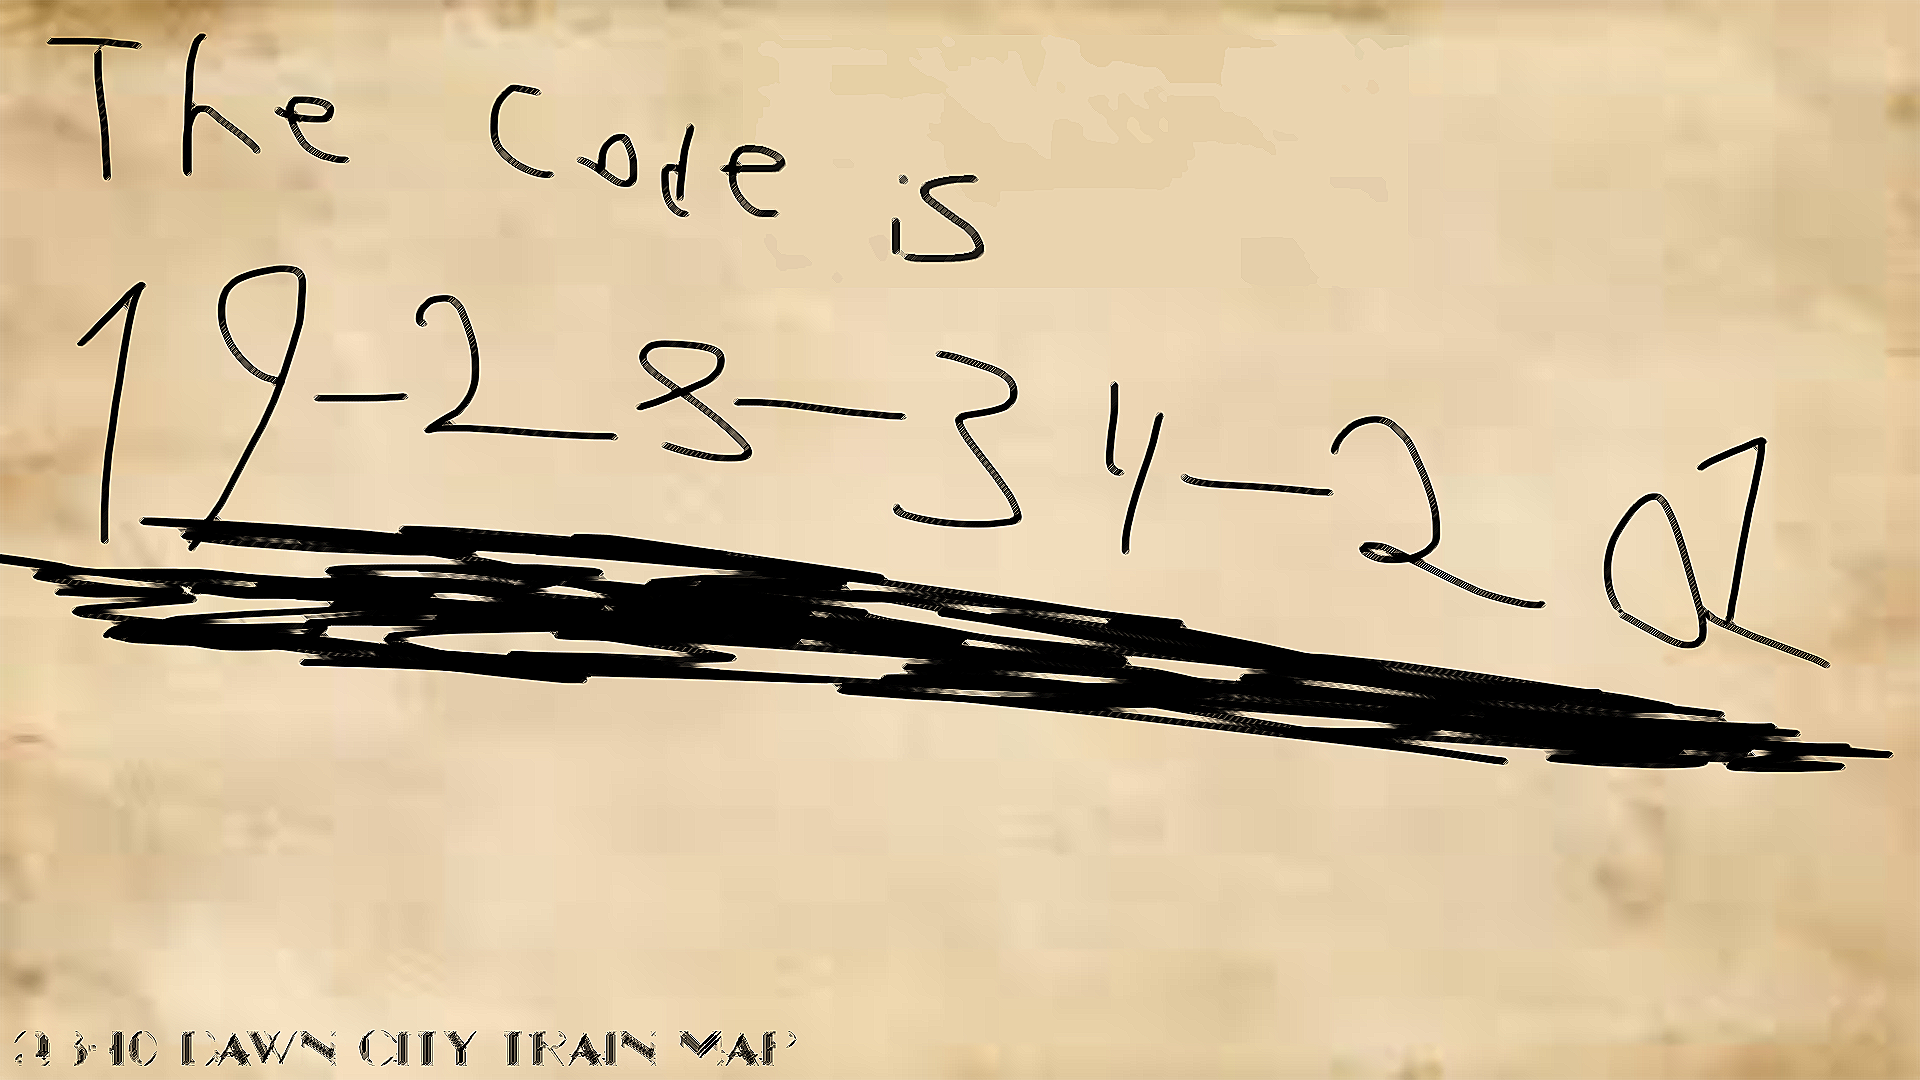 The Code is
19-28-34-221
DAWN CITY TRAIN MAP